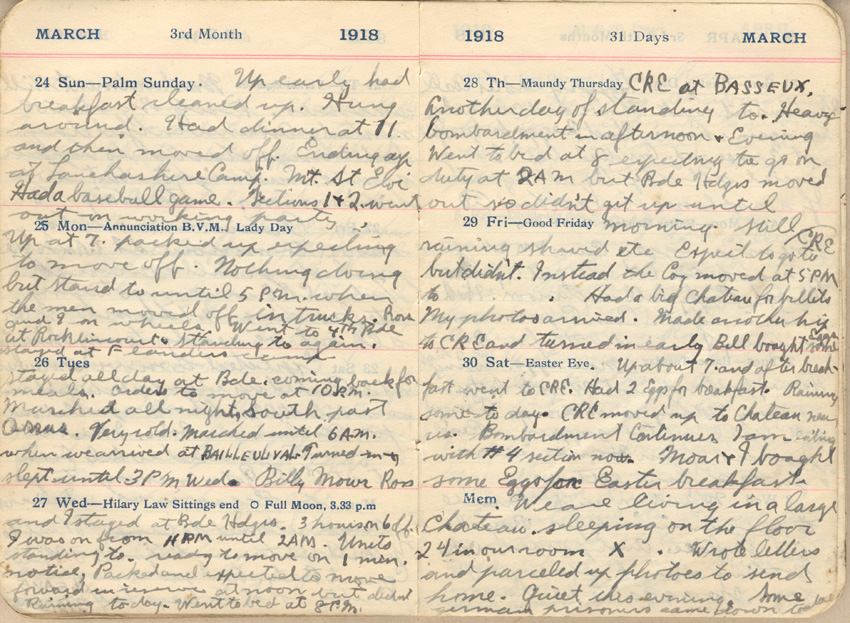 MARCH 3rd Month 1918
24 Sun—Palm Sunday. Up early had
breakfast cleaned up. Hung
around. Had dinner at 11
and then moved off. Ending up
at Lancashire Camp. Mt. St Eloi
Had a baseball game. Sections 1 & 2 went
out on working party
25 Mon—Annunciation B.V.M. Lady Day
Up at 7. packed up expecting
to move off. Nothing doing
but stand to until 5 P.M. when
the men moved off in trucks. Ross
and I on wheels. Went to 4th Bde
at Rocklincourt. Standing to again.
stayed at Flanders Camp
26 Tues
stayed all day at Bde. coming back for
meals. orders to move at 10 P.M.
Marched all night, South past
Arras. Very cold. Marched until 6 A.M.
when we arrived at BAILLEULVAL. Turned in &
slept until 3 PM Wed. Billy Mowr Ross
27 Wed—Hilary Law Sittings end O Full Moon, 3.33 p.m
and I stayed at Bde Hdqrs. 3 hours on 6 off.
I was on from 11 PM until 2 AM. Units
standing to. ready to move on 1 men.
notice. Packed and expected to move
forward in reserve at noon but didnt
Raining today. Went to bed at 8 P.M.
1918 31 Days MARCH
28 Th—Maundy Thursday CRE at BASSEUX.
Another day of standing to. Heavy
bombardment in afternoon & Evening
Went to bed at 8 expecting to go on
duty at 2 AM but Bde Hdqrs moved
out so didn't get up until
29 Fri—Good Friday morning. Still
raining shaved etc Expect to go to CRE
but didn't. Instead the Coy moved at 5 PM
to . . Had a big Chateau for billits
My photos arrived. Made another trip
to CRE and turned in early Bill bought some
Eggs
30 Sat—Easter Eve. Up about 7. and after break-
fast went to CRE. Had 2 Eggs for breakfast. Raining
some to day. CRE moved up to Chateau near
us. Bombardment Continues I am eating
with #4 section now. Moar & I bought
some Eggs for Easter breakfast.
Mem We are living in a large
Chateau. sleeping on the floor
24 in our room X . Wrote letters
and parceled up photoes to send
home. Quiet this evening. Some
german prisoners came down to